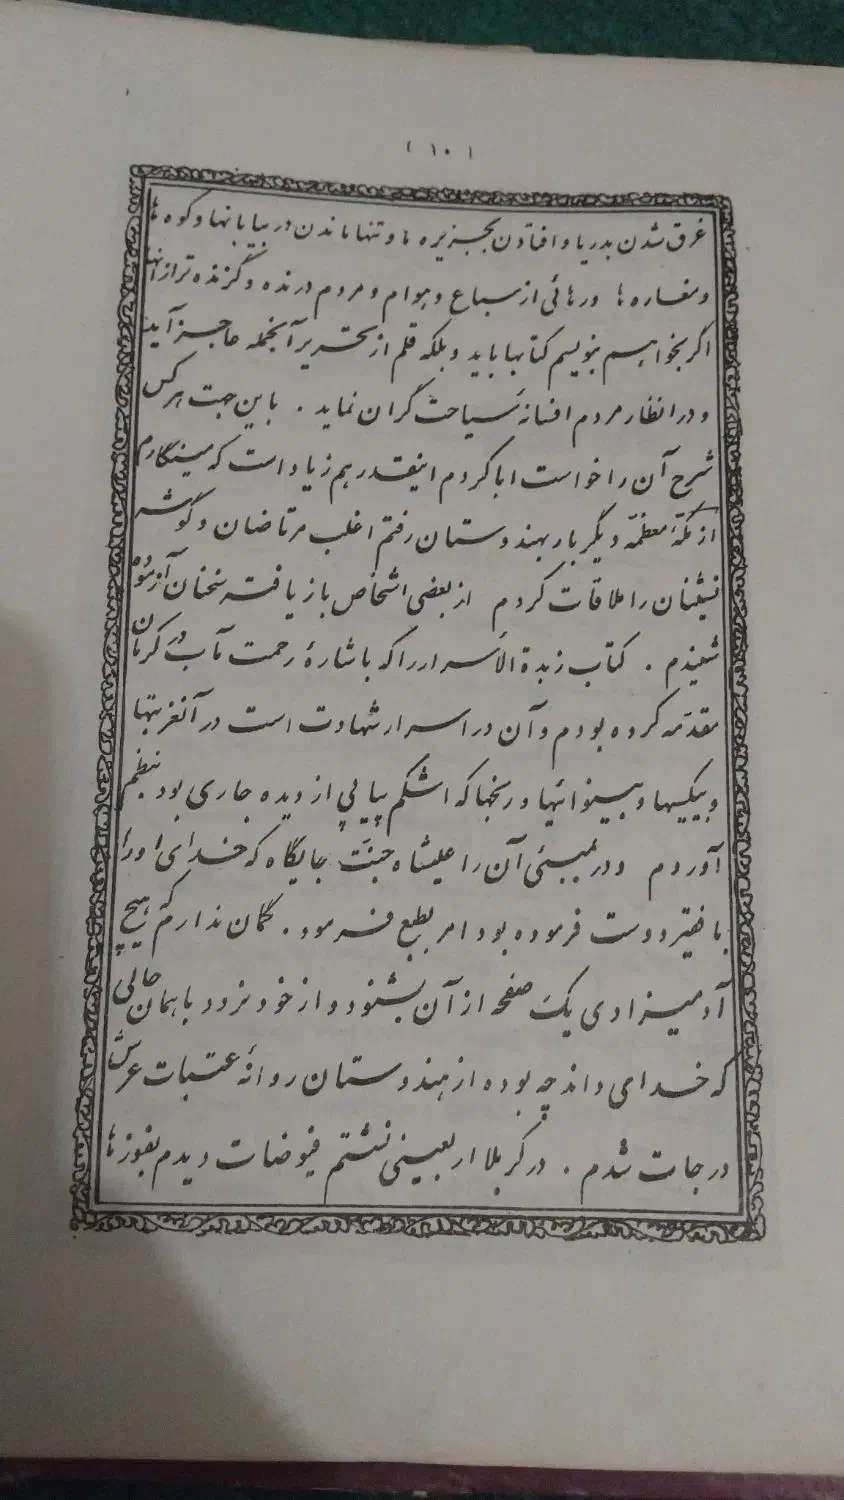 ( ۱۰ )
غرق شدن بدریا و افتادن بجزیره ها و تنها ماندن در بیابانها و کوه ها
و مغاره ها و رهائی از سباع و هوام و مردم درنده و گزنده تر از آنها
اگر بخواهیم بنویسم کتابها باید و بلکه قلم از تحریر آنجمله عاجز آید
و در انظار مردم افسانه سیاحت گران نماید . باین جهت هر کس
شرح آن را خواست ابا کردم اینقدر هم زیاد است که مینگارم
از مکّهٔ معظّمه دیگر بار بهندوستان رفتم اغلب مرتاضان و گوشه
نشینان را ملاقات کردم از بعضی اشخاص باز یافته سخنان آزموده
شنیدم . کتاب زبدة الاسرار را که باشارهٔ رحمت مآب در کرمان
مقدّمه کرده بودم و آن در اسرار شهادت است در آنغربتها
و بیکسیها و بینوائیها و رنجها که اشکم پیاپی از دیده جاری بود بنظم
آوردم و در بمبئی آن را علیشاه جنّت جایگاه که خدای او را
با فقیر دوست فرموده بود امر بطبع فرمود . گمان ندارم که هیچ
آدمیزادی یک صفحه از آن بشنود و از خود نرود با همان حالی
که خدای داند چه بوده از هندوستان روانهٔ عتبات عرش
درجات شدم . در کربلا اربعینی نشستم فیوضات دیدم بفوزها